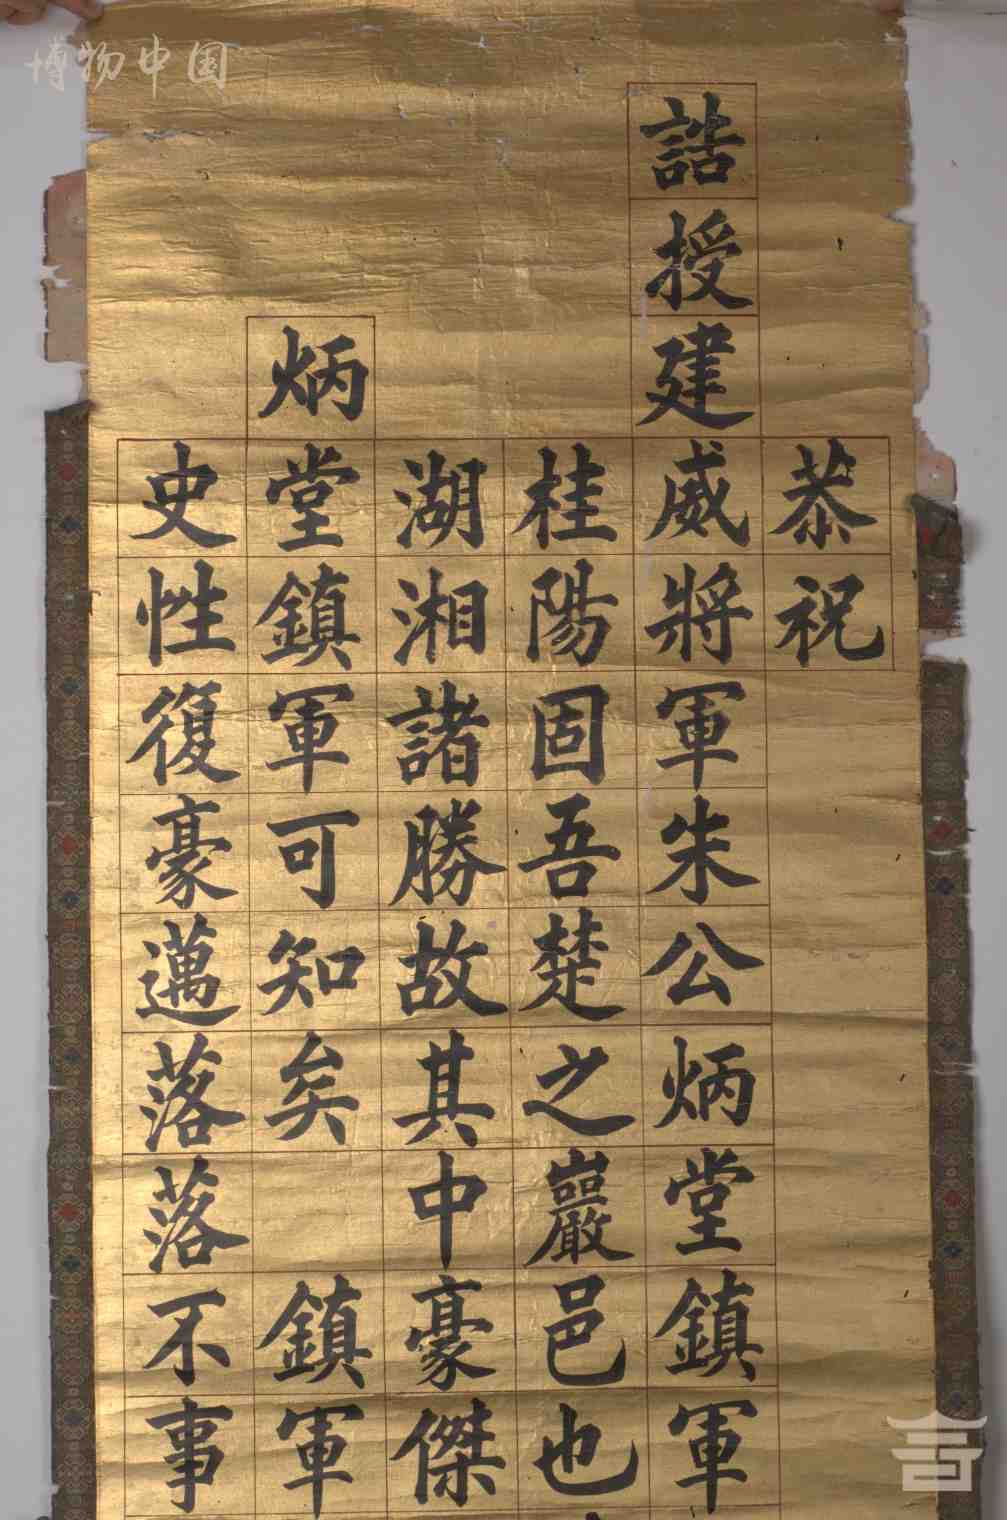 恭祝
誥授建威將軍朱公炳堂鎮軍
桂陽固吾楚之巖邑也
湖湘諸勝故其中豪傑
炳堂鎮軍可知矣 鎮軍
史性復豪邁落落不事
博物中国